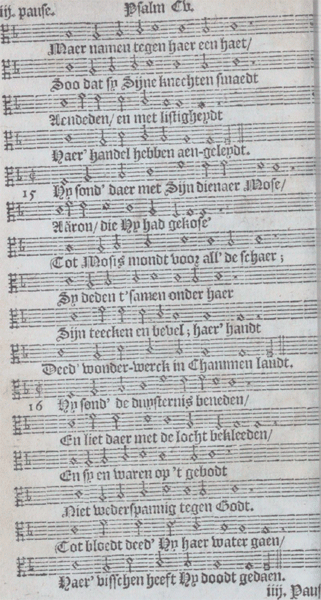 iij. pause. Psalm Cv.
Maer namen tegen haer een haet/
Soo dat sy Sijne knechten smaedt
Aendeden/ en met listigheydt
Haer' handel hebben aen-geleydt.
15 Hy sond' daer met Sijn dienaer Mose/
Aäron/ die Hy had gekose'
Tot Mosis mondt voor all' de schaer;
Sy deden t'samen onder haer
Sijn teecken en bevel; haer' handt
Deed' wonder-werck in Chammen landt.
16 Hy sond' de duysternis beneden/
En liet daer met de locht bekleeden/
En sy en waren op 't gebodt
Niet wederspannig tegen Godt.
Tot bloedt deed' Hy haer water gaen/
Haer' visschen heeft Hy doodt gedaen.
iiij. Paus